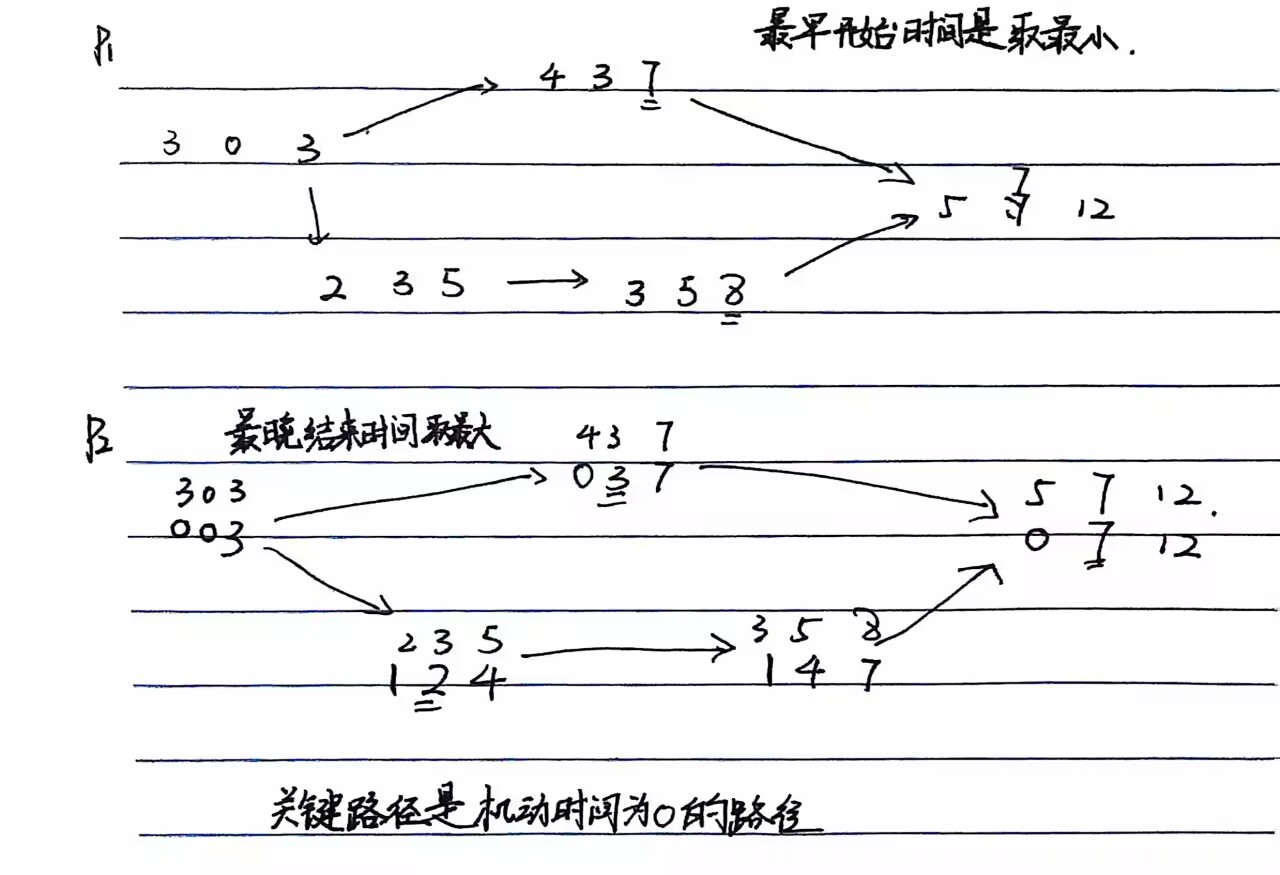 P1
最早开始时间是取最小.
4 3 7
3 0 3
7
5 12
2 3 5
3 5 8
P2
最晚结束时间取最大
4 3 7
0 3 7
3 0 3
0 0 3
5 7 12.
0 7 12
2 3 5
1 2 4
3 5 8
1 4 7
关键路径是机动时间为0的路径